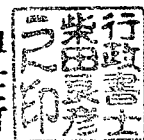 行政書士
柴田
之印